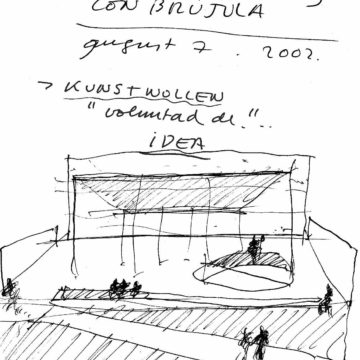 CON BRÚJULA
august 7 . 2002.
> KUNSTWOLLEN
"voluntad de"...
iDEA